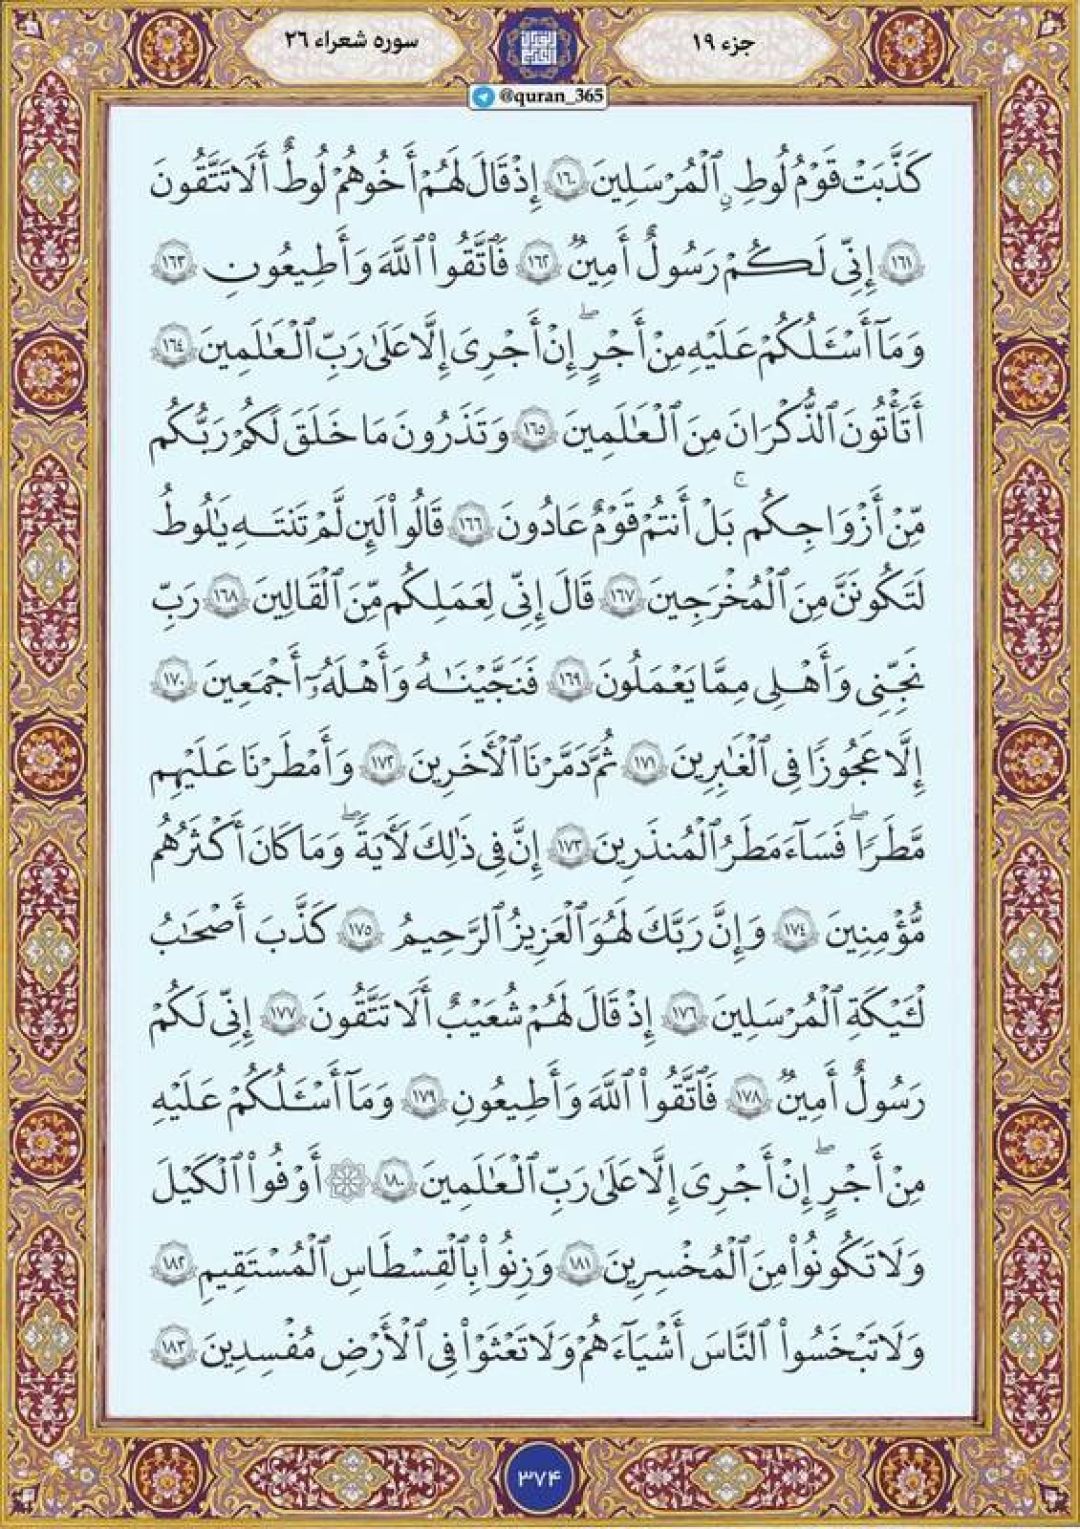 جزء ۱۹
سوره شعراء ۲۶
@quran_365
كَذَّبَتْ قَوْمُ لُوطٍ ٱلْمُرْسَلِينَ ١٦٠ إِذْ قَالَ لَهُمْ أَخُوهُمْ لُوطٌ أَلَا تَتَّقُونَ
١٦١ إِنِّي لَكُمْ رَسُولٌ أَمِينٌ ١٦٢ فَٱتَّقُوا۟ ٱللَّهَ وَأَطِيعُونِ ١٦٣
وَمَآ أَسْـَٔلُكُمْ عَلَيْهِ مِنْ أَجْرٍ ۖ إِنْ أَجْرِىَ إِلَّا عَلَىٰ رَبِّ ٱلْعَـٰلَمِينَ ١٦٤
أَتَأْتُونَ ٱلذُّكْرَانَ مِنَ ٱلْعَـٰلَمِينَ ١٦٥ وَتَذَرُونَ مَا خَلَقَ لَكُمْ رَبُّكُم
مِّنْ أَزْوَاجِكُم ۚ بَلْ أَنتُمْ قَوْمٌ عَادُونَ ١٦٦ قَالُوا۟ لَئِن لَّمْ تَنتَهِ يَـٰلُوطُ
لَتَكُونَنَّ مِنَ ٱلْمُخْرَجِينَ ١٦٧ قَالَ إِنِّى لِعَمَلِكُم مِّنَ ٱلْقَالِينَ ١٦٨ رَبِّ
نَجِّنِى وَأَهْلِى مِمَّا يَعْمَلُونَ ١٦٩ فَنَجَّيْنَـٰهُ وَأَهْلَهُۥٓ أَجْمَعِينَ ١٧٠
إِلَّا عَجُوزًا فِى ٱلْغَـٰبِرِينَ ١٧١ ثُمَّ دَمَّرْنَا ٱلْـَٔاخَرِينَ ١٧٢ وَأَمْطَرْنَا عَلَيْهِم
مَّطَرًا ۖ فَسَآءَ مَطَرُ ٱلْمُنذَرِينَ ١٧٣ إِنَّ فِى ذَٰلِكَ لَـَٔايَةً ۖ وَمَا كَانَ أَكْثَرُهُم
مُّؤْمِنِينَ ١٧٤ وَإِنَّ رَبَّكَ لَهُوَ ٱلْعَزِيزُ ٱلرَّحِيمُ ١٧٥ كَذَّبَ أَصْحَـٰبُ
لْـَٔيْكَةِ ٱلْمُرْسَلِينَ ١٧٦ إِذْ قَالَ لَهُمْ شُعَيْبٌ أَلَا تَتَّقُونَ ١٧٧ إِنِّى لَكُمْ
رَسُولٌ أَمِينٌ ١٧٨ فَٱتَّقُوا۟ ٱللَّهَ وَأَطِيعُونِ ١٧٩ وَمَآ أَسْـَٔلُكُمْ عَلَيْهِ
مِنْ أَجْرٍ ۖ إِنْ أَجْرِىَ إِلَّا عَلَىٰ رَبِّ ٱلْعَـٰلَمِينَ ١٨٠ ۞ أَوْفُوا۟ ٱلْكَيْلَ
وَلَا تَكُونُوا۟ مِنَ ٱلْمُخْسِرِينَ ١٨١ وَزِنُوا۟ بِٱلْقِسْطَاسِ ٱلْمُسْتَقِيمِ ١٨٢
وَلَا تَبْخَسُوا۟ ٱلنَّاسَ أَشْيَآءَهُمْ وَلَا تَعْثَوْا۟ فِى ٱلْأَرْضِ مُفْسِدِينَ ١٨٣
۳۷۴